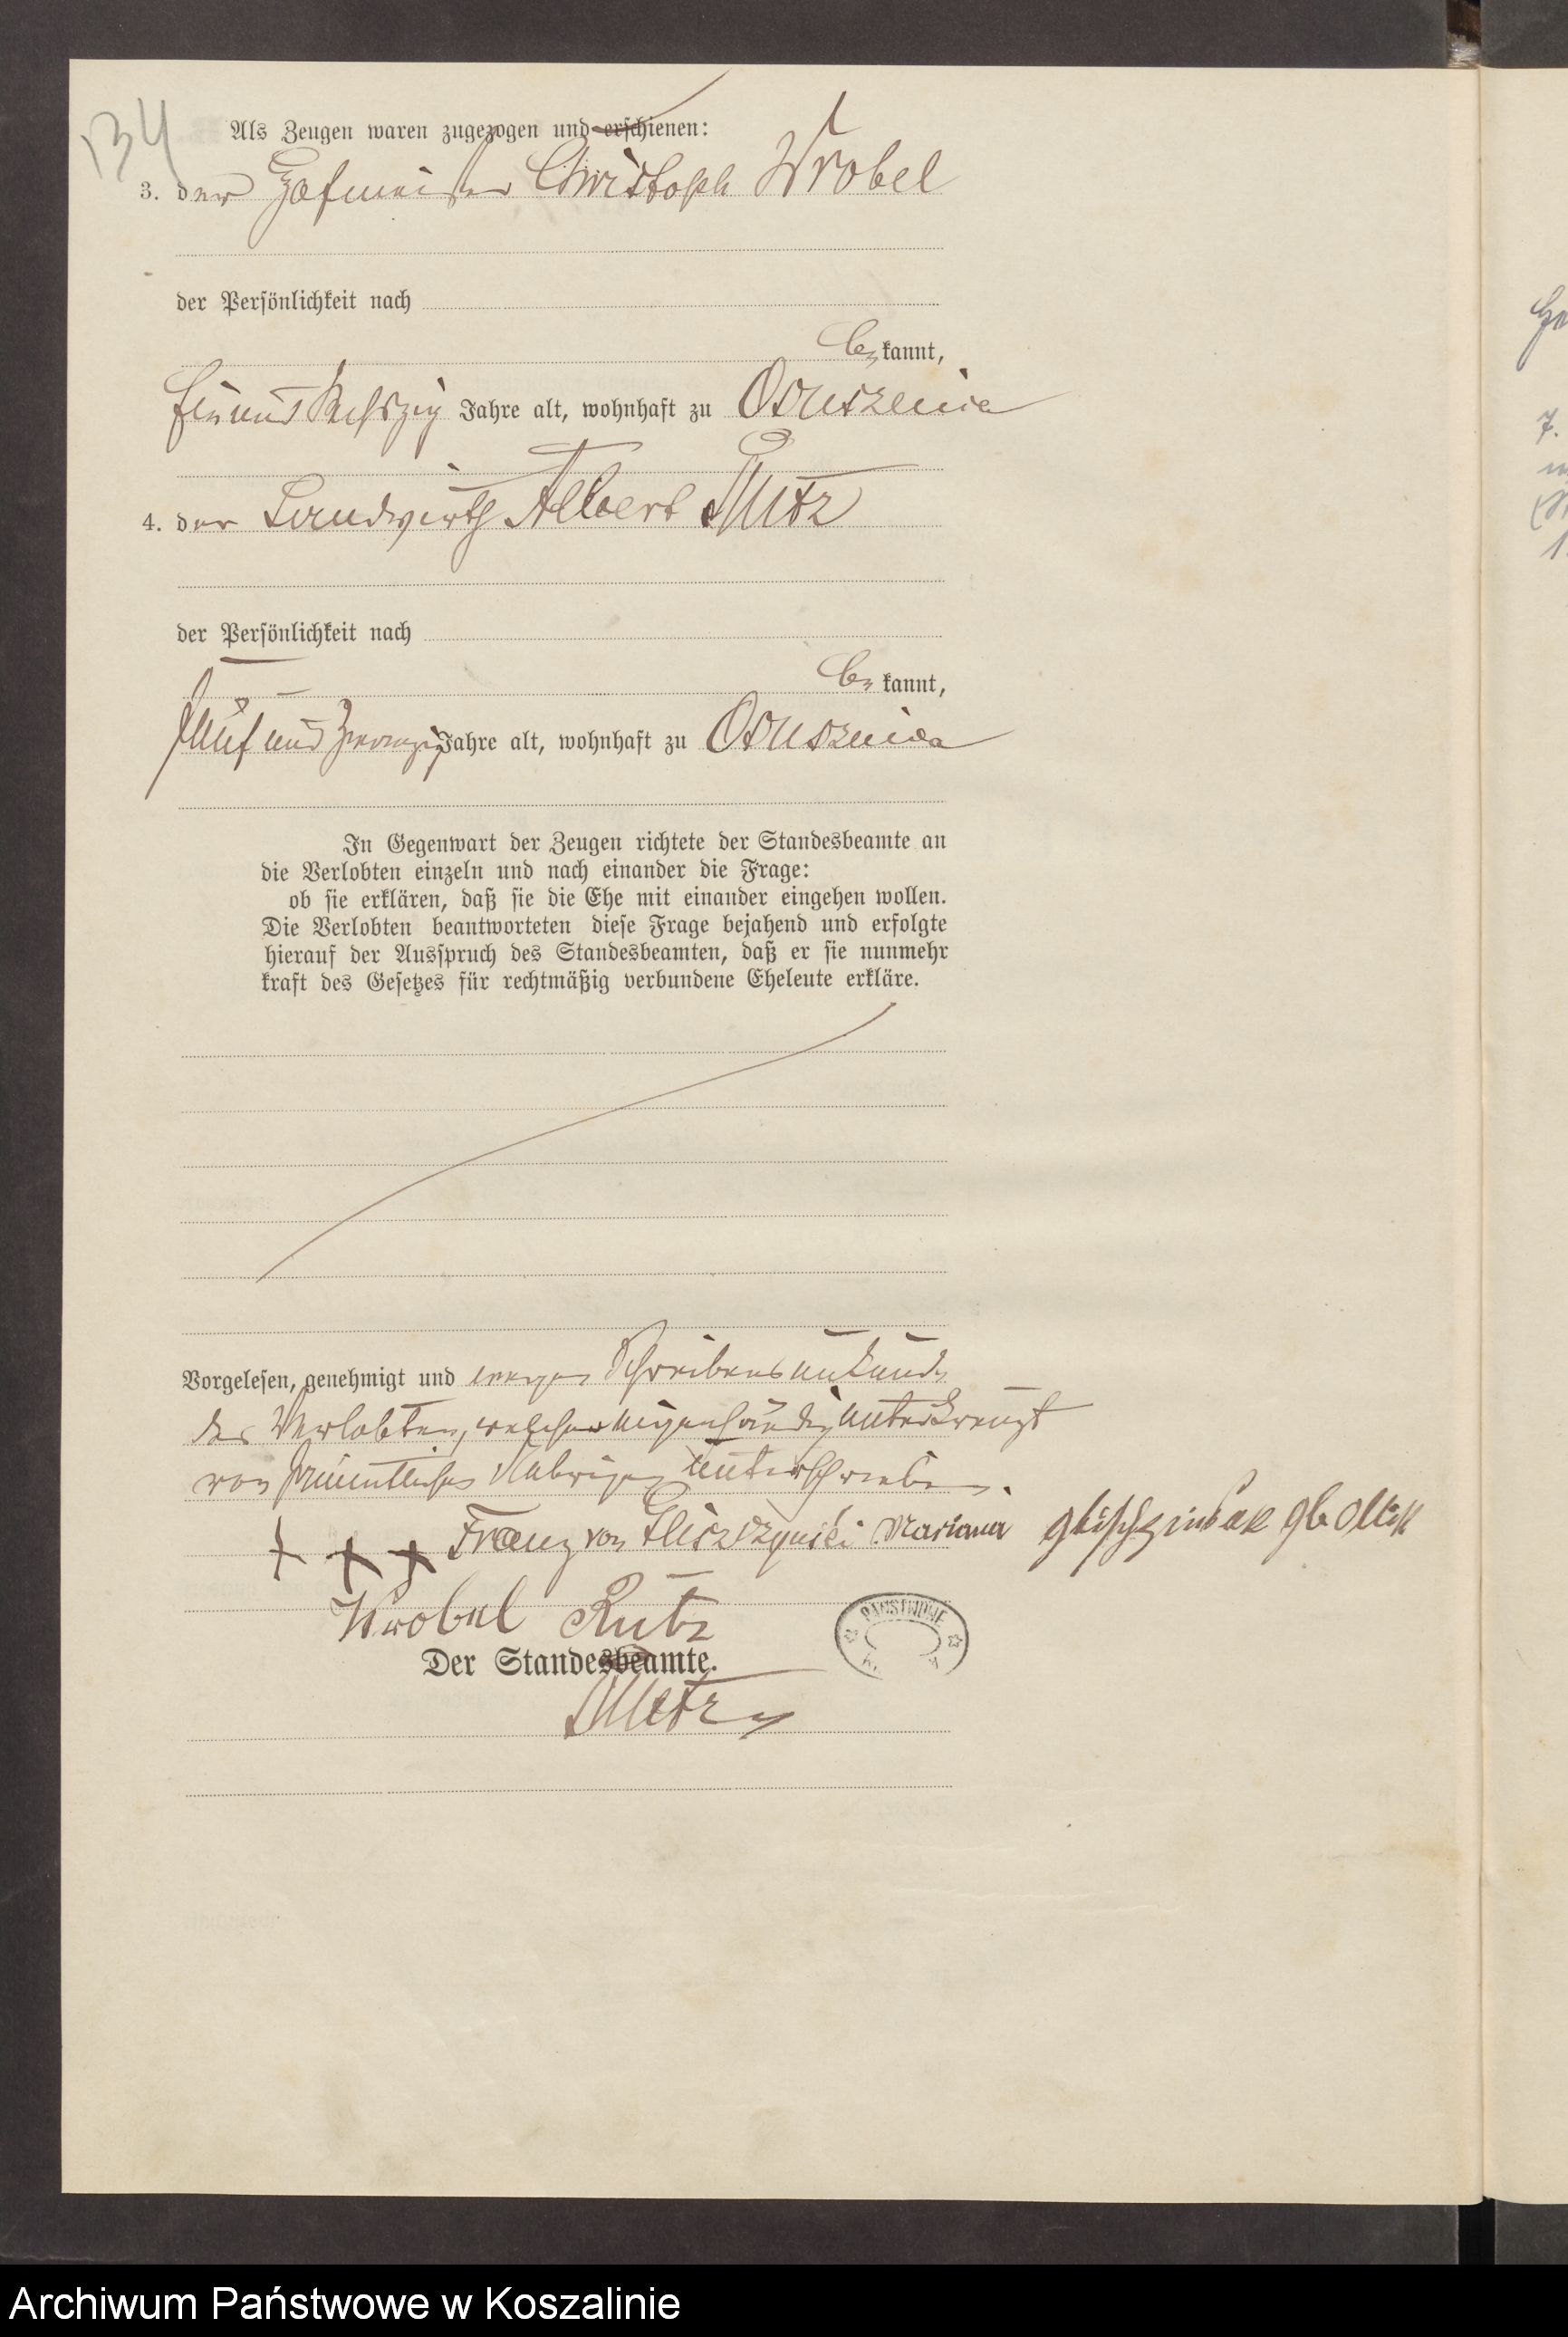 134
Als Zeugen waren zugezogen und erschienen:
3. der Hofmeister Christoph Wrobel
der Persönlichkeit nach
be kannt,
Ein und Sechszig Jahre alt, wohnhaft zu Osuszenica
4. der Landwirth Albert Rutz
der Persönlichkeit nach
be kannt,
Fünf und Zwanzig Jahre alt, wohnhaft zu Osuszenica
In Gegenwart der Zeugen richtete der Standesbeamte an
die Verlobten einzeln und nach einander die Frage:
ob sie erklären, daß sie die Ehe mit einander eingehen wollen.
Die Verlobten beantworteten diese Frage bejahend und erfolgte
hierauf der Ausspruch des Standesbeamten, daß er sie nunmehr
kraft des Gesetzes für rechtmäßig verbundene Eheleute erkläre.
Vorgelesen, genehmigt und wegen Schreibensunkunde
des Verlobten, welcher eigenhändig unterkreuzt
von sämmtlichen Uebrigen unterschrieben.
+ + + Franz von Gliszczynski Mariana
Wrobel Rutz
Der Standesbeamte.
Rutz
PAŃSTWOWE
Archiwum Państwowe w Koszalinie